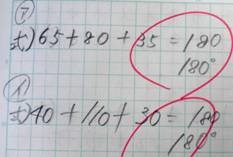 ⑦
式)65+80+35=180
180°
⑧
式)40+110+30=180
180°